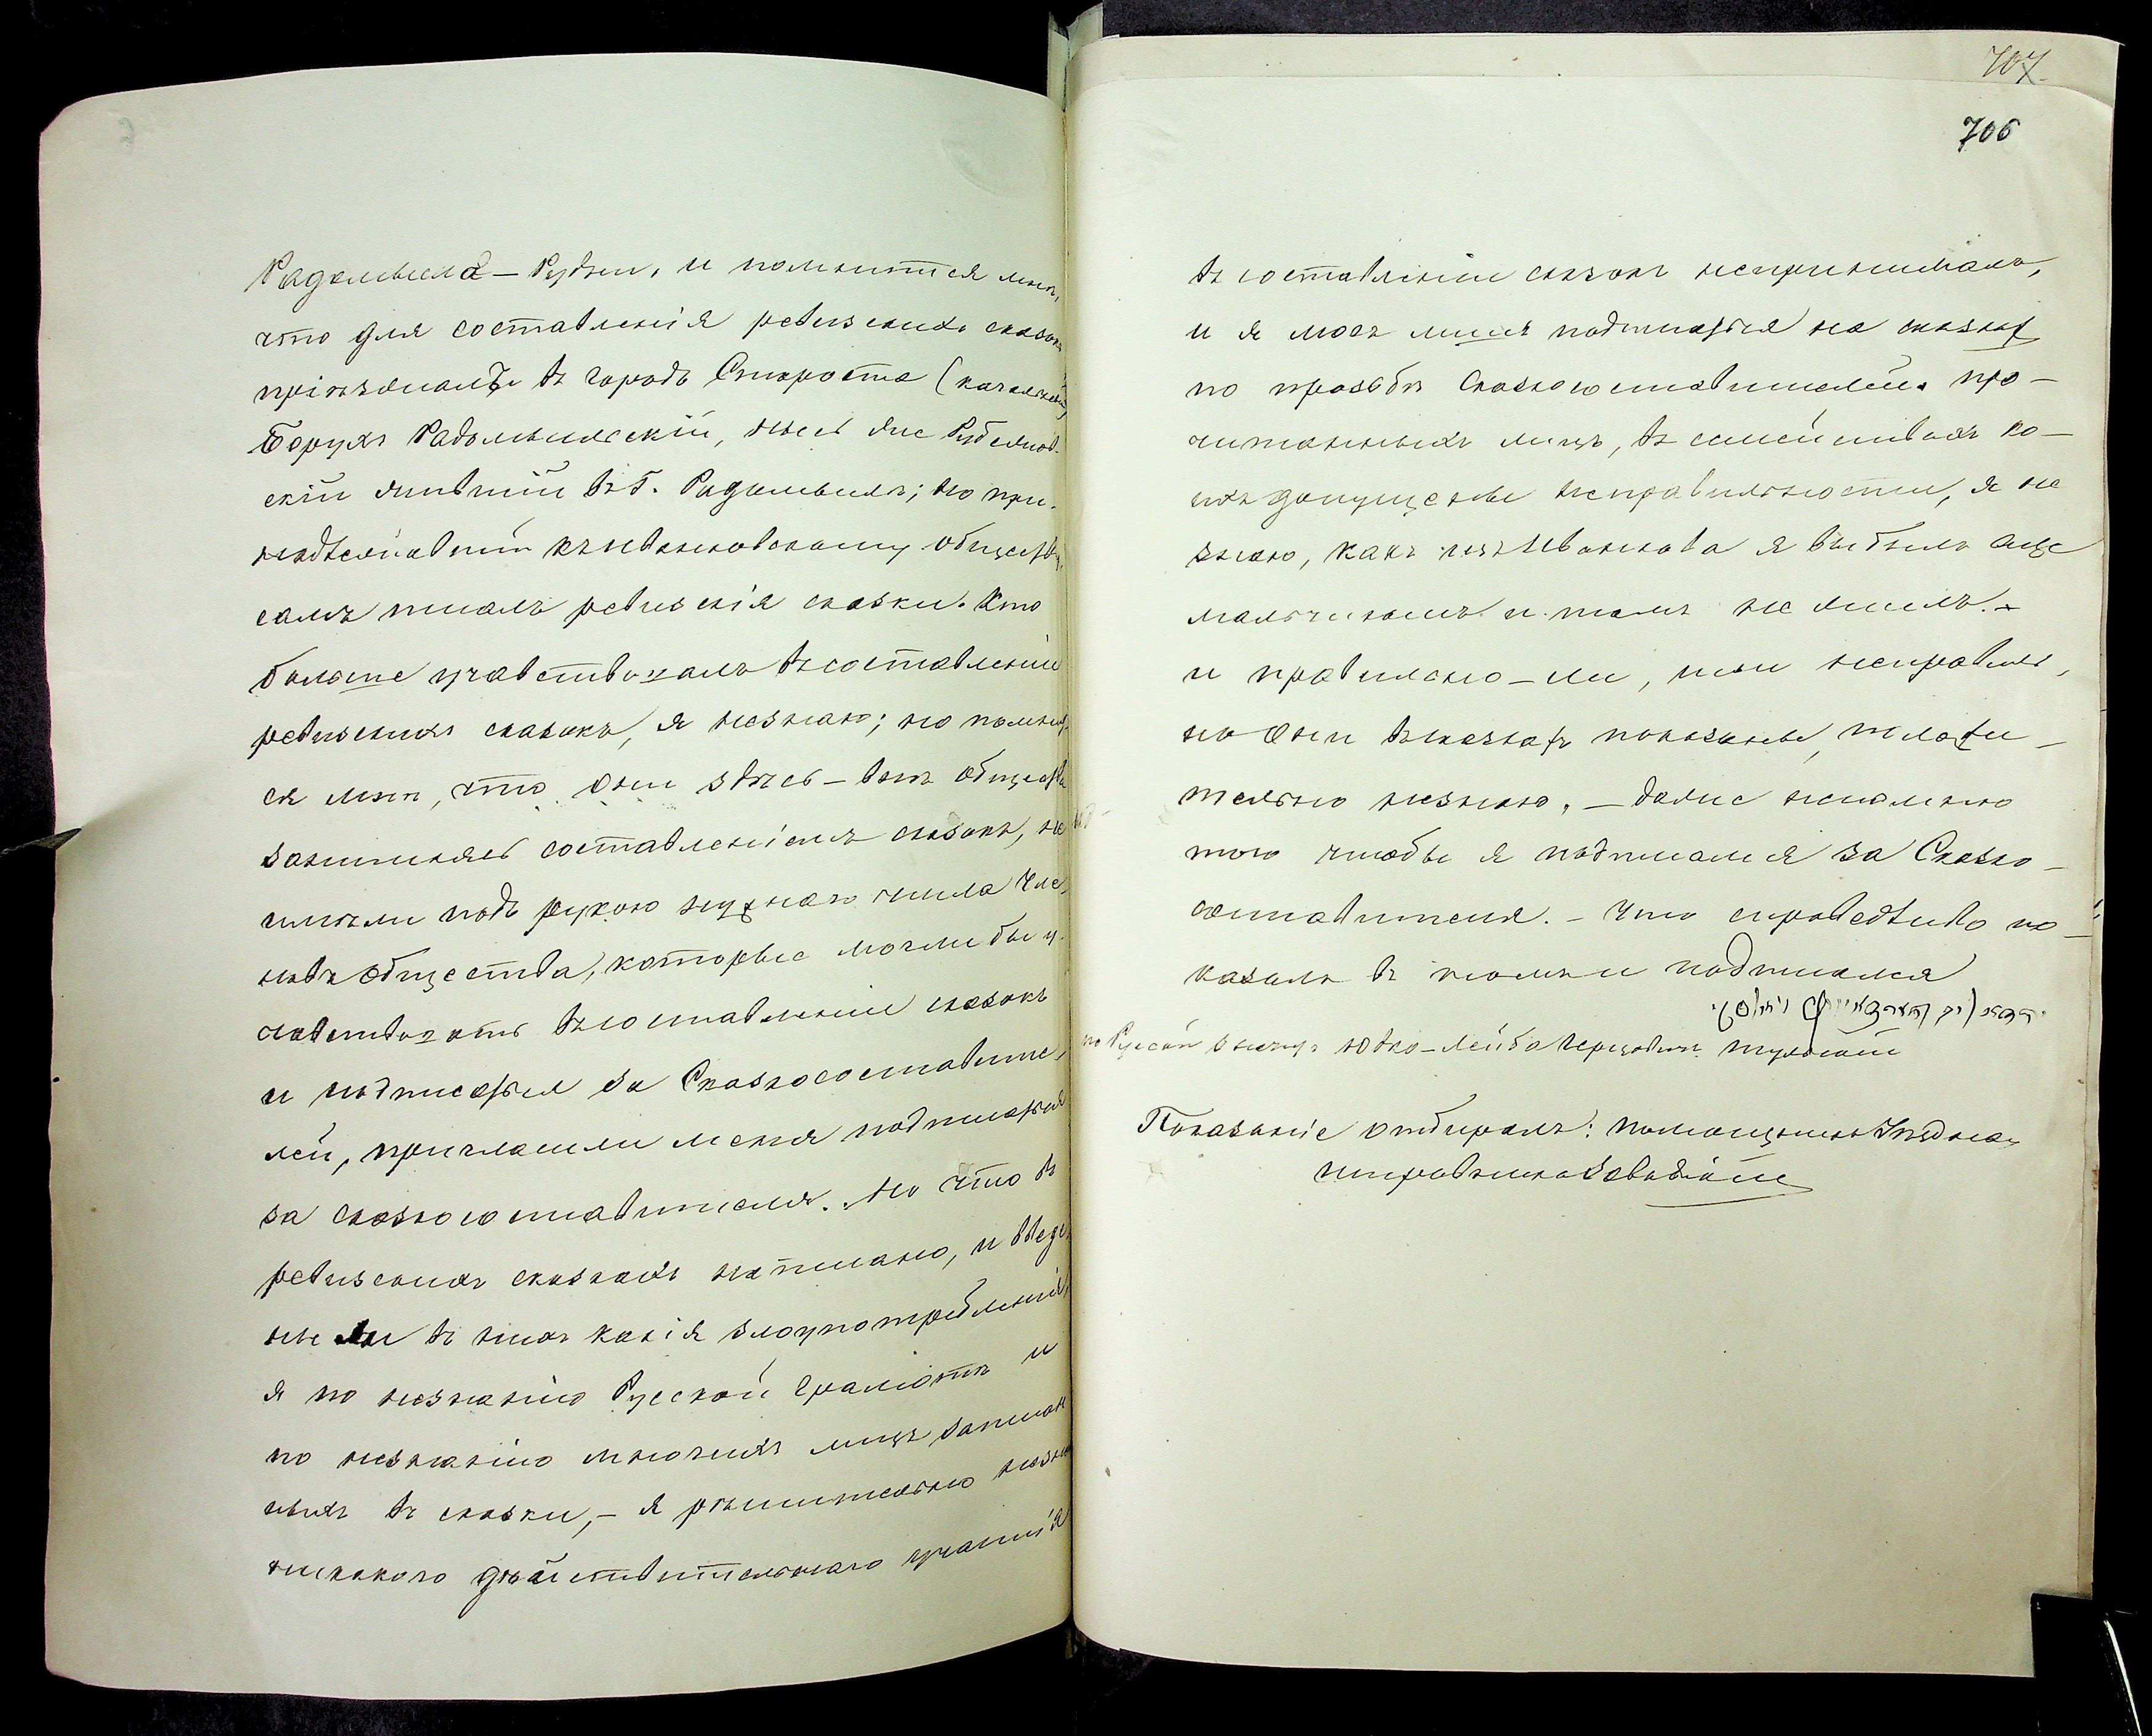 Радомысла – Рудни, и помнится мнѣ,
что для составленія ревизскихъ сказокъ
пріѣзжалъ въ городъ Староста (
Борухъ Радомысльскій,
скій жившій въ г. Радомыслѣ; но при-
надлежавшій къ Иванковскому обществу,
самъ писалъ ревизскія сказки. Кто
больше учавствовалъ въ составленіи
ревизскихъ сказокъ, я незнаю; но помнит-
ся мнѣ, что они здѣсь – внѣ общества
занимаясь составленіемъ сказокъ, не
имѣли подъ рукою нужнаго числа чле-
новъ общества, которые могли бы у-
чавствовать въ составленіи сказокъ
и подписаться за Сказкосоставите-
лей, пригласили меня подписаться
за сказкосоставителя. Но что въ
ревизскихъ сказкахъ написано, и введе-
ны ли въ нихъ какія злоупотребленія,
я по незнанію Русской грамотѣ и
по незнанію многихъ лицъ записан-
ныхъ въ сказки, – я рѣшительно незнаю
никакого дѣйствительнаго участія
707
706
въ составленіи сказокъ непринималъ,
и я могъ лишь подписаться на сказкахъ
по просьбѣ Сказкосоставителей. Про-
читанныхъ лицъ, въ семействахъ ко-
ихъ допущены неправильности, я не
знаю, какъ изъ Иванкова я выбылъ еще
мальчикомъ и тамъ не жилъ. –
и правильно-ли, или неправильно,
но они въ сказкахъ показаны, положи-
тельно незнаю, – даже непомню
того чтобы я подписался за Сказко-
составителя. – Что справедливо по-
казалъ въ томъ и подписался
по Русски значитъ Юдко-Лейба Герцовичъ
Показаніе отбиралъ: помощникъ Уѣзднаго
исправника